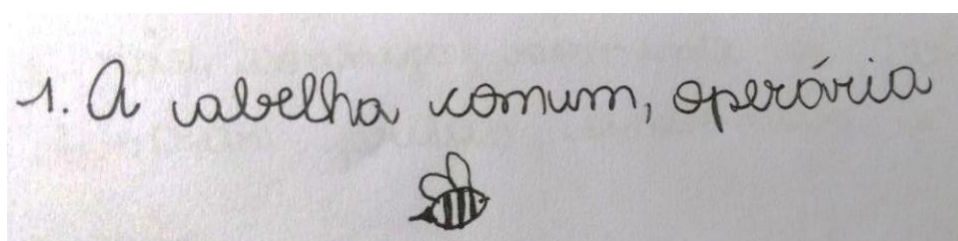 1. A abelha comum, operária